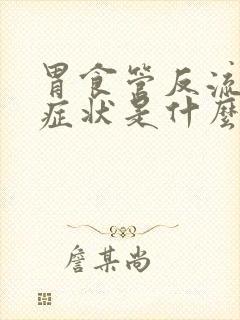 胃食管反流
症状是什麼
詹某尚